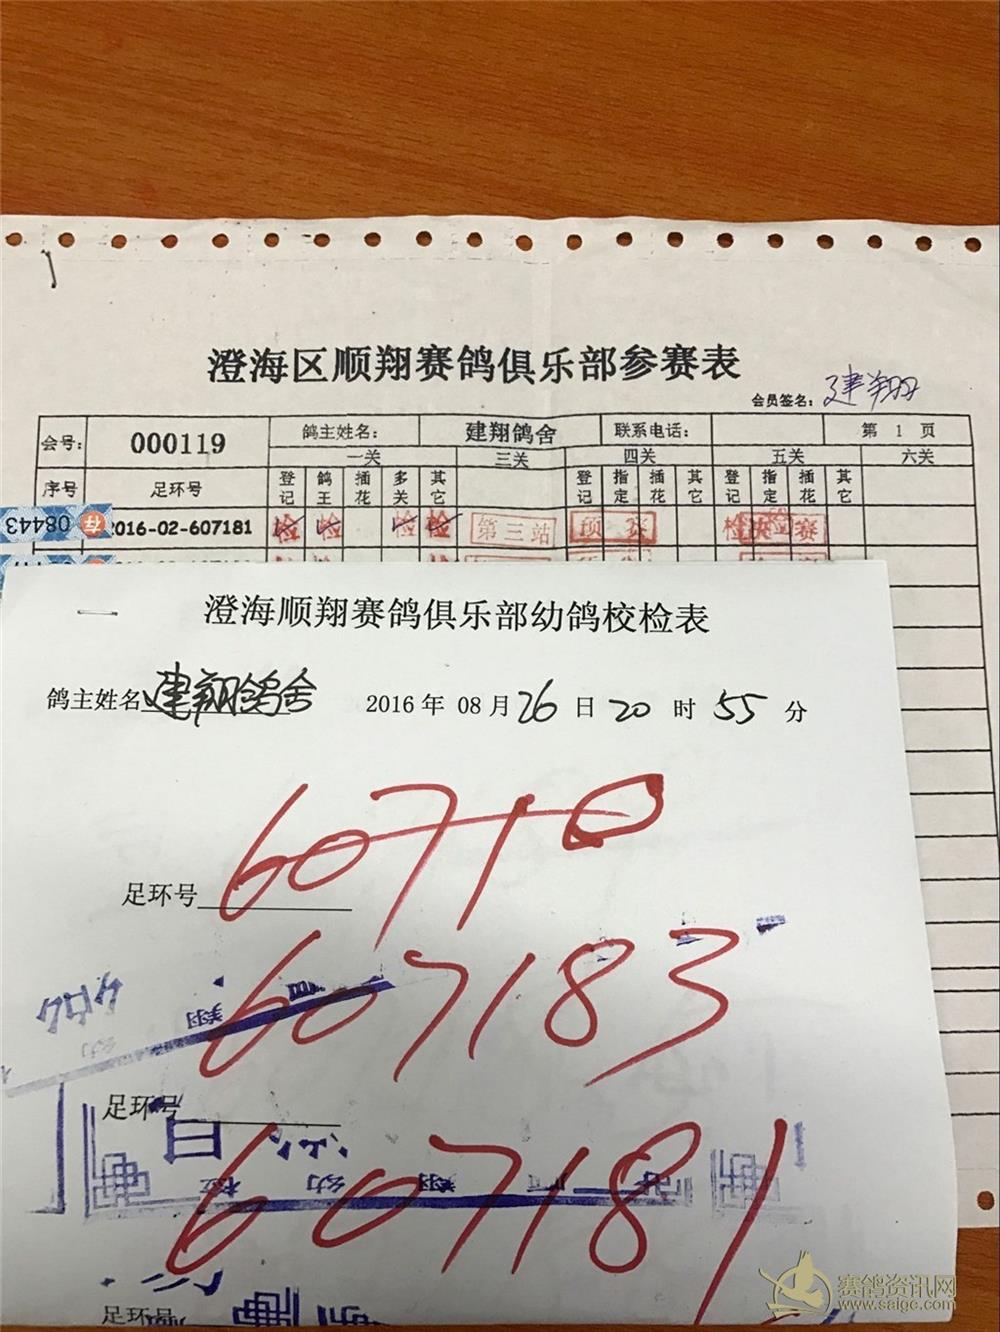 澄海区顺翔赛鸽俱乐部参赛表
会员签名: 建翔
会号: 000119 鸽主姓名: 建翔鸽舍 联系电话: 第 1 页
一关 三关 四关 五关 六关
序号 足环号 登记 鸽王 插花 多关 其它 登记 指定 插花 其它 登记 指定 插花 其它
08443 存 2016-02-607181 检 检 检 检 第三站 预赛 检 决赛
澄海顺翔赛鸽俱乐部幼鸽校检表
鸽主姓名 建翔鸽舍 2016 年 08 月 26 日 20 时 55 分
足环号
607183
足环号
607181
足环号
赛鸽资讯网
www.saige.com